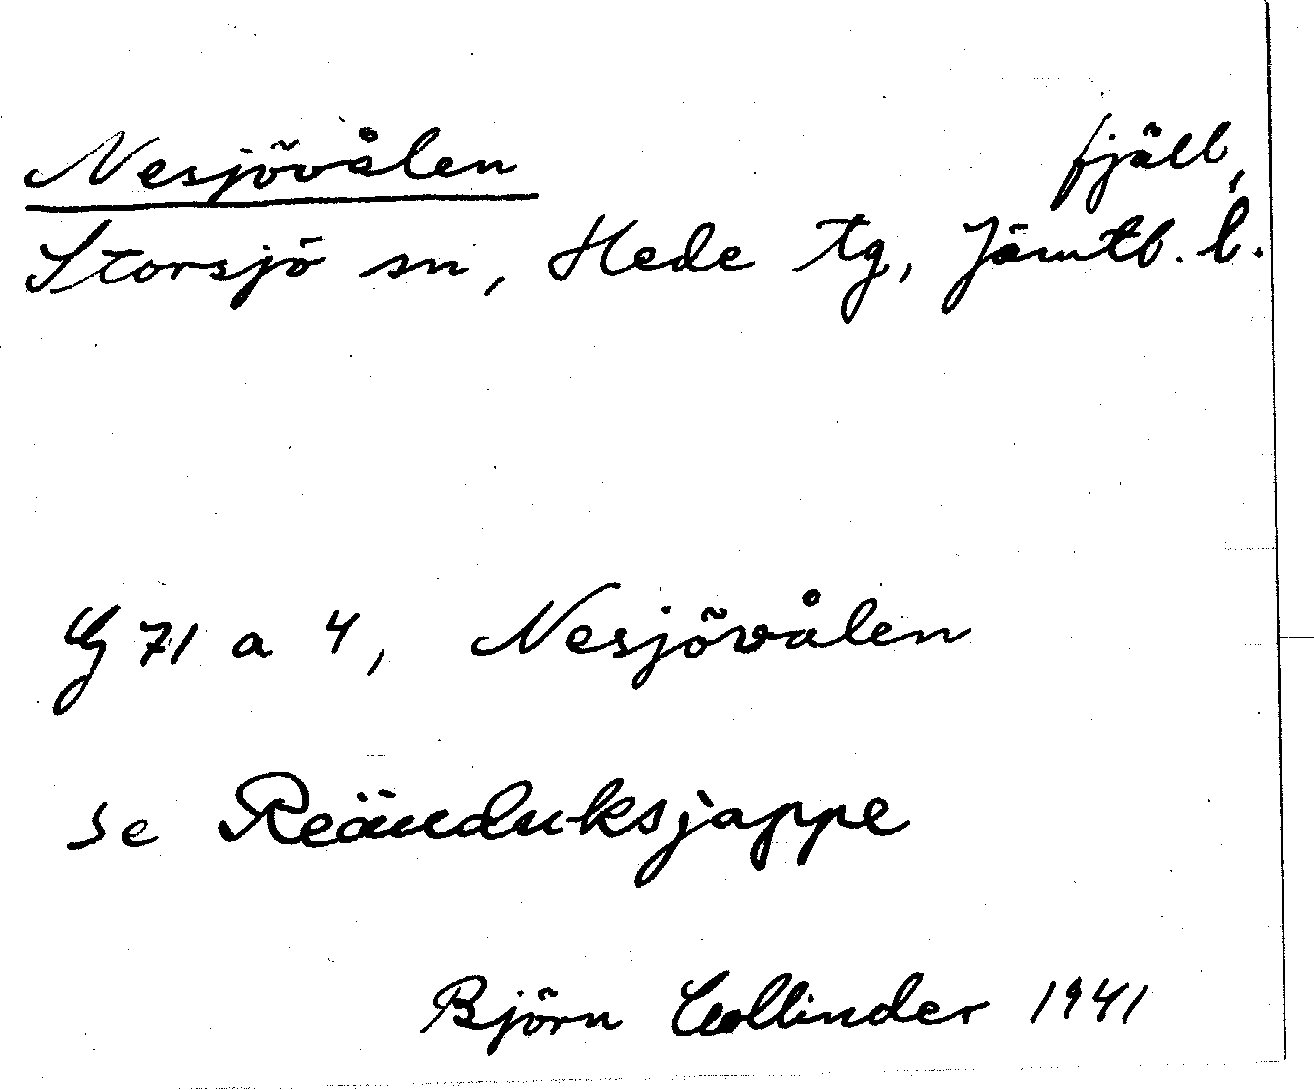 Nesjövålen fjäll,
Storsjö sn, Hede tg, Jämtl. l.
G 71 a 4, Nesjövålen
se Reänduksjappe
Björn Collinder 1941